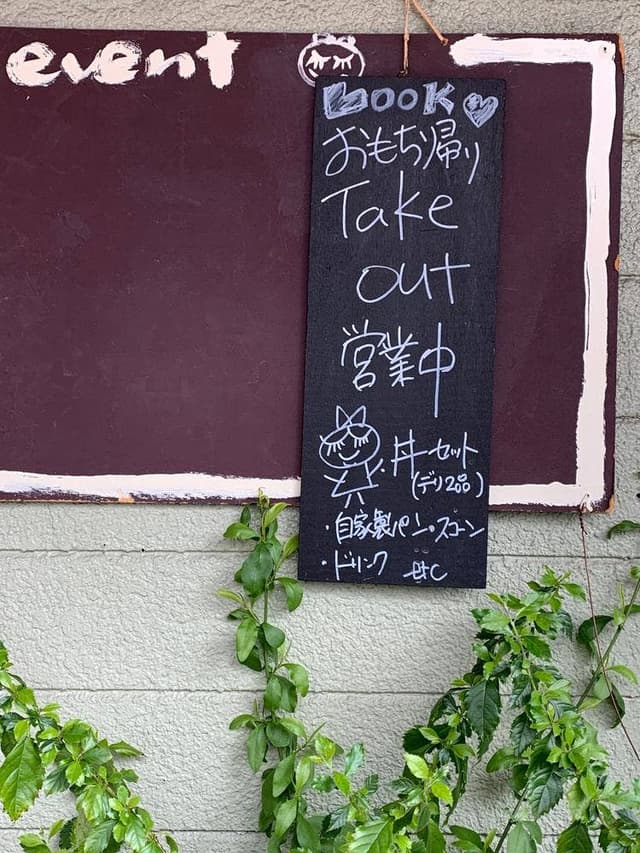 event
Book
おもち帰り
Take
out
営業中
丼セット
(デリ2品)
・自家製パン・スコーン
・ドリンク etc